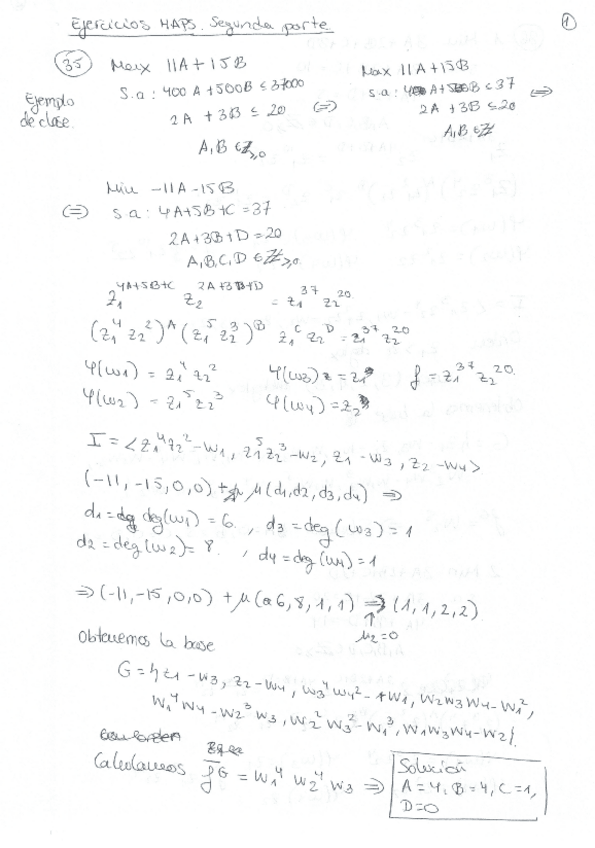 Ejercicios MAPS. Segunda parte
1
35 Max 11A+15B
Ejemplo de clase.
s.a: 400A+500B ≤ 37000
2A + 3B ≤ 20
A,B ∈ Z≥0
(=)
Max 11A+15B
s.a: 4A+5B ≤ 37
2A+3B ≤ 20
A,B ∈ Z
(=)
Min -11A-15B
(=) s.a: 4A+5B+C=37
2A+3B+D=20
A,B,C,D ∈ Z≥0
z1^(4A+5B+C) z2^(2A+3B+D) = z1^37 z2^20
(z1^4 z2^2)^A (z1^5 z2^3)^B z1^C z2^D = z1^37 z2^20
φ(w1) = z1^4 z2^2 φ(w3) = z1 f = z1^37 z2^20
φ(w2) = z1^5 z2^3 φ(w4) = z2
I = <z1^4 z2^2 - w1, z1^5 z2^3 - w2, z1 - w3, z2 - w4>
(-11,-15,0,0) + μ(d1,d2,d3,d4) ⇒
d1 = deg(w1) = 6, d3 = deg(w3) = 1
d2 = deg(w2) = 8, d4 = deg(w4) = 1
⇒ (-11,-15,0,0) + μ(6,8,1,1) ⇒ (1,1,2,2)
μ=2
Obtenemos la base
G = {z1 - w3, z2 - w4, w3^4 w4^2 - w1, w2w3w4 - w1^2,
w1^4 w4 - w2^3 w3, w2^2 w3^2 - w1^3, w1w3w4 - w2}.
Calculamos f^G = w1^4 w2^4 w3 ⇒
Solución
A=4, B=4, C=1,
D=0